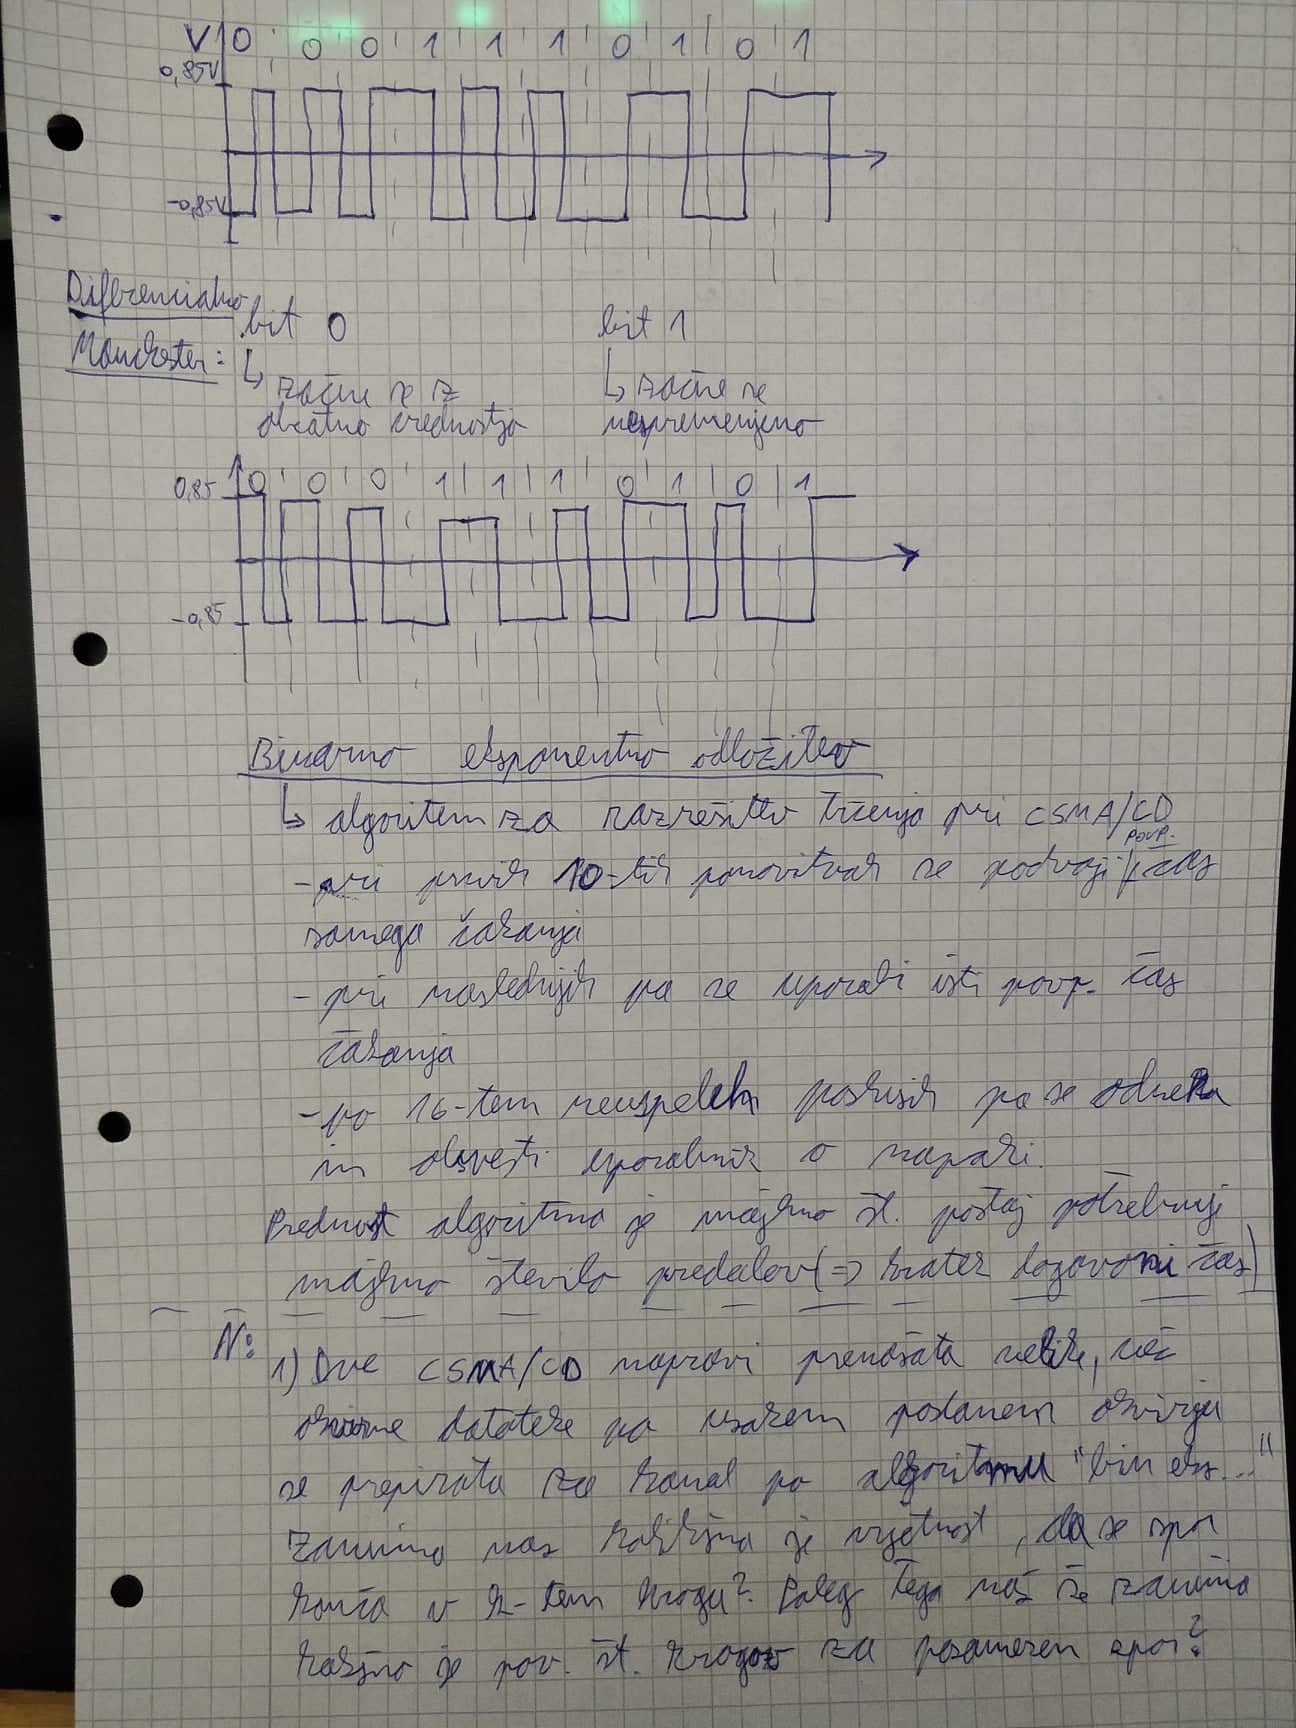 V 0 0 0 1 1 1 0 1 0 1
0,85V
-0,85V
Diferencialno
Manchester:
bit 0
bit 1
↳ začne se z
obratno vrednostjo
↳ začne se
nespremenjeno
0 0 0 1 1 1 0 1 0 1
0,85
-0,85
Binarno eksponentno odložitev
↳ algoritem za razrešitev trčenja pri CSMA/CD
povp.
- pri prvih 10-tih ponovitvah se podvoji čas
samega čakanja
- pri naslednjih pa se uporabi isti povp. čas
čakanja
- po 16-tem neuspelem poskusih pa se odneha
in obvesti uporabnik o napaki.
Prednost algoritma je majhno št. postaj potrebuje
majhno število predalov (=> kratek dogovorni čas)
N:
1) Dve CSMA/CD napravi prenašata velike, več
okvirne datoteke po vsakem poslanem okvirju
se prepirata za kanal po algoritmu "bin eks..."
Zanima nas kolikšna je verjetnost, da se spor
konča v k-tem krogu? Poleg tega nas še zanima
kakšno je pov. št. krogov za posamezen spor?